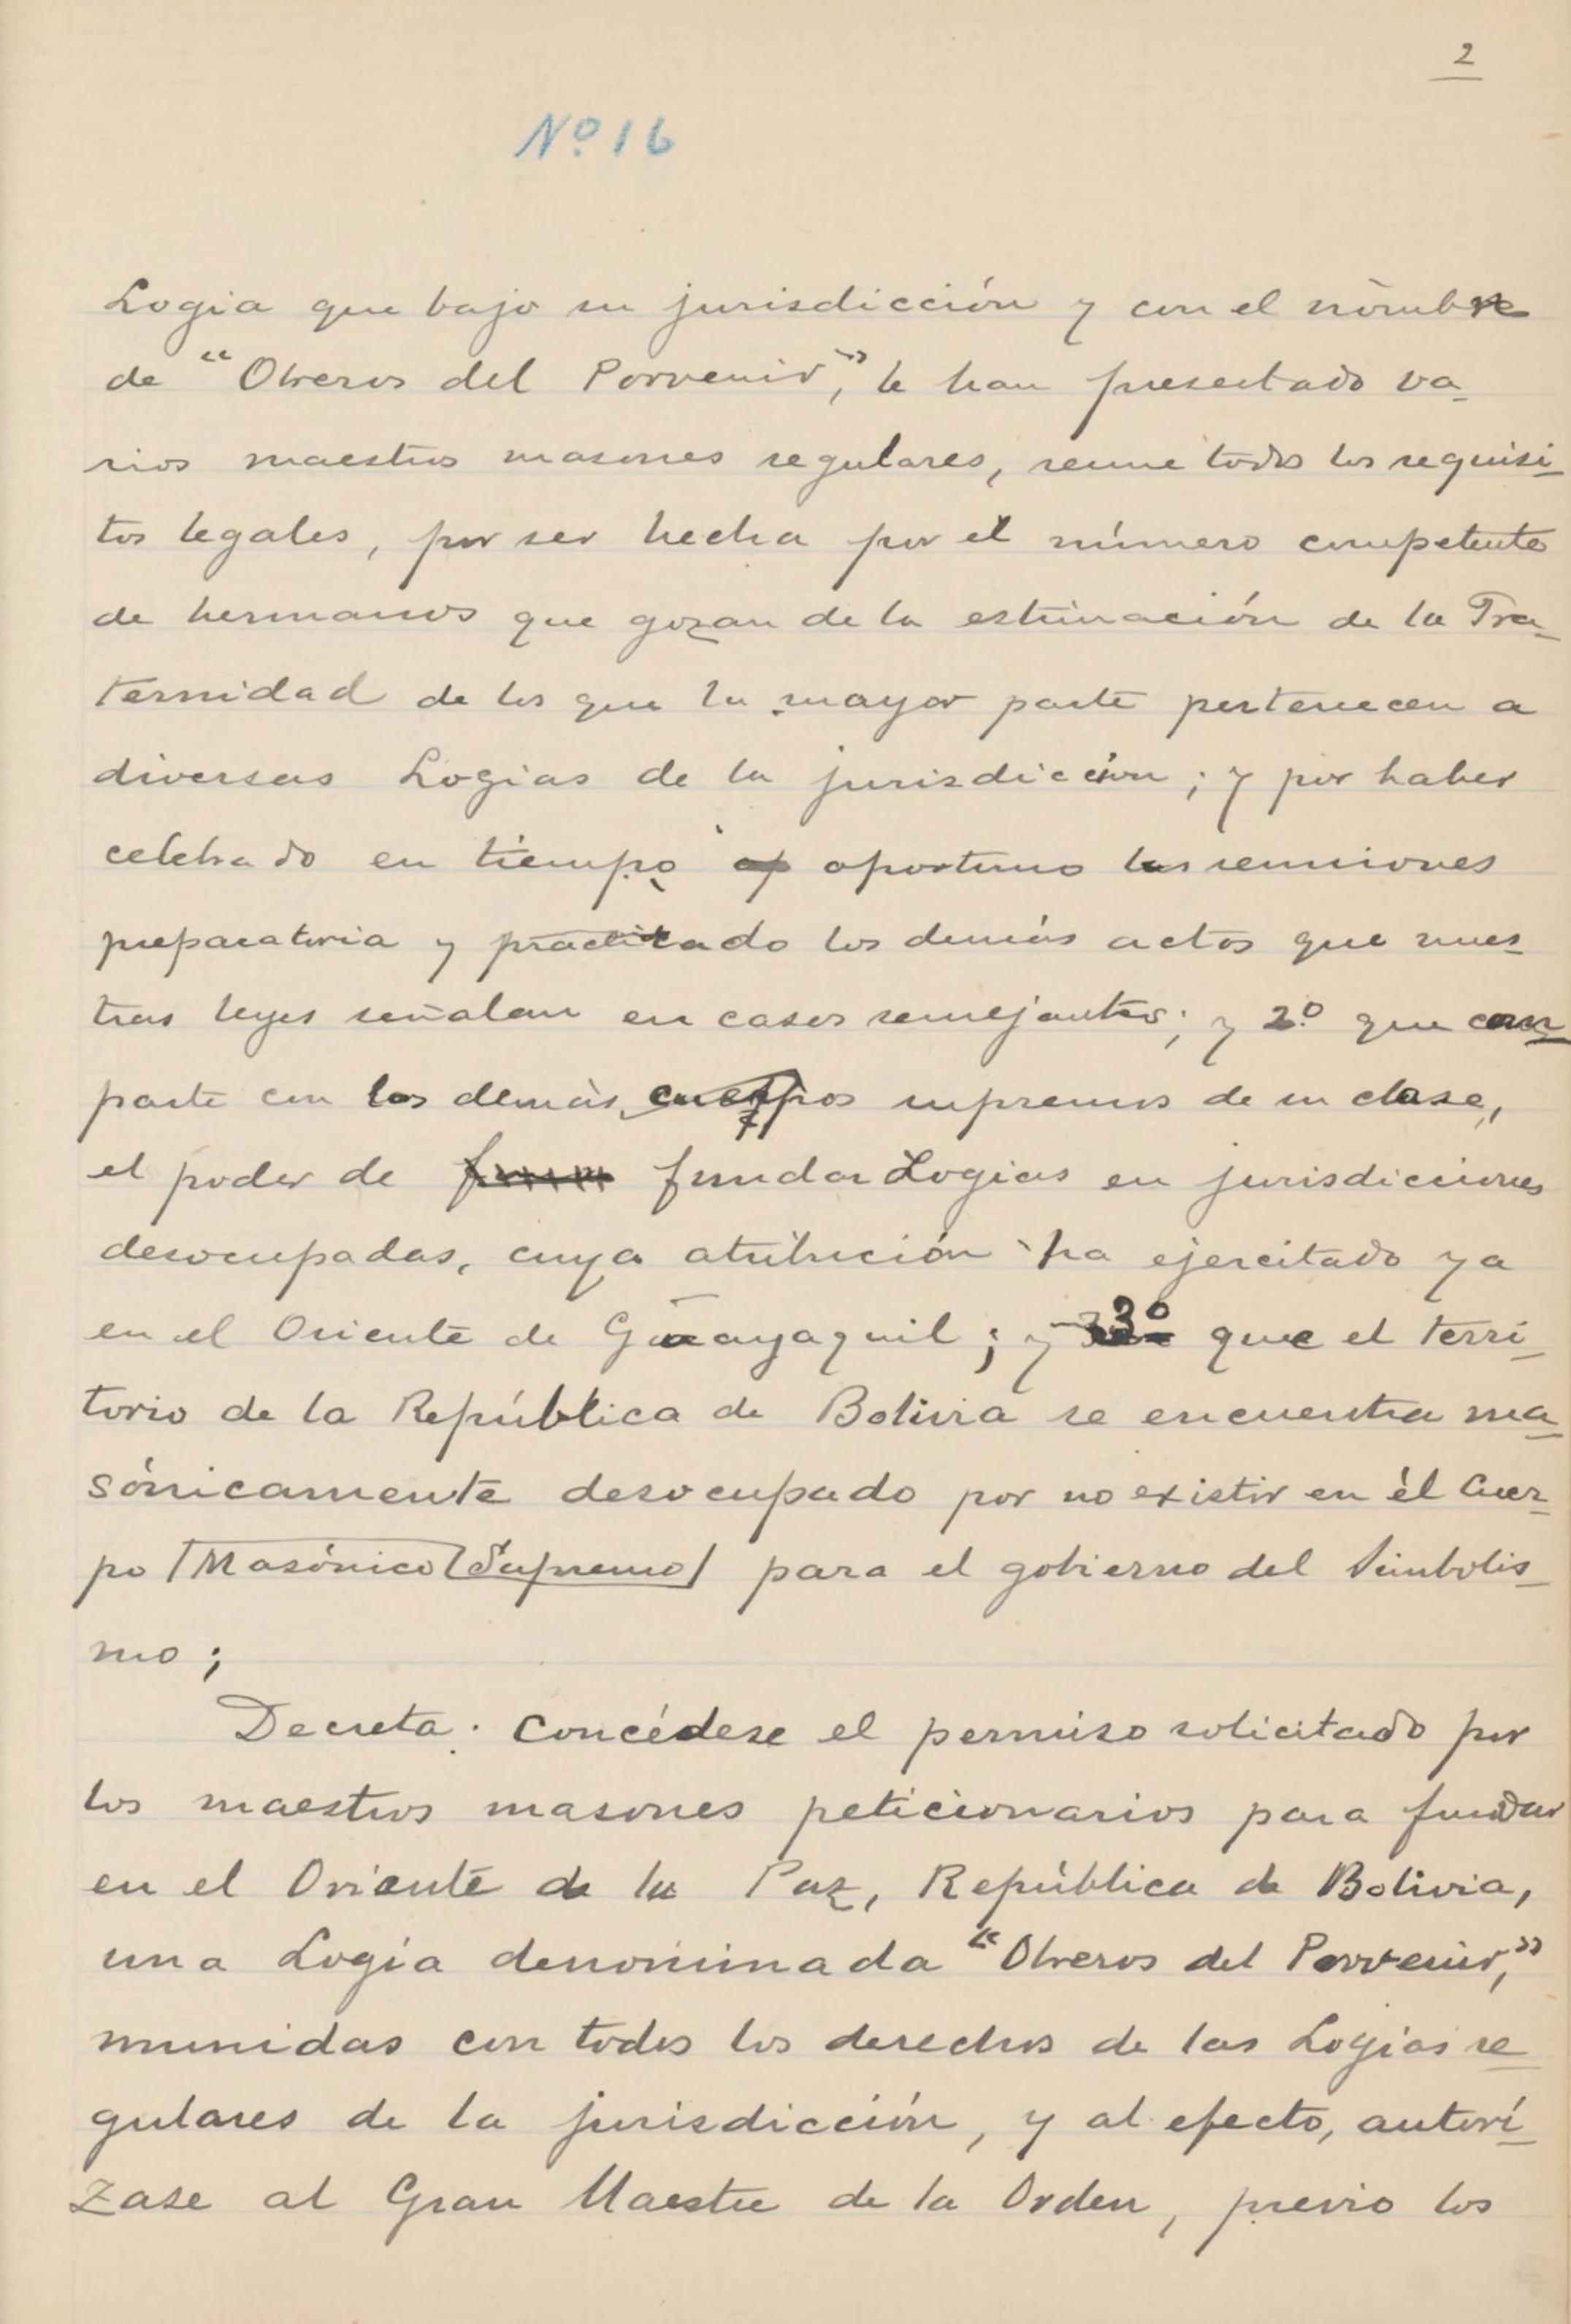 2
Nº 16
Logia que bajo su jurisdicción y con el nombre
de "Obreros del Porvenir," le han presentado va-
rios maestros masones regulares, reune todos los requisi-
tos legales, por ser hecha por el número competente
de hermanos que gozan de la estimación de la Fra-
ternidad de los que la mayor parte pertenecen a
diversas Logias de la jurisdicción; y por haber
celebrado en tiempo op oportuno las reuniones
preparatoria y practicado los demás actos que nues-
tras leyes señalan en casos semejantes; y 2º que com-
parte con los demás cuerpos supremos de su clase,
el poder de fundar Logias en jurisdicciones
desocupadas, cuya atribución ha ejercitado ya
en el Oriente de Guayaquil; y 3º que el terri-
torio de la República de Bolivia se encuentra ma-
sónicamente desocupado por no existir en él Cuer-
po Masónico Supremo para el gobierno del Simbolis-
mo;
Decreta: Concédese el permiso solicitado por
los maestros masones peticionarios para fundar
en el Oriente de la Paz, República de Bolivia,
una Logia denominada "Obreros del Porvenir,"
munidas con todos los derechos de las Logias re-
gulares de la jurisdicción, y al efecto, autorí-
zase al Gran Maestre de la Orden, previo los